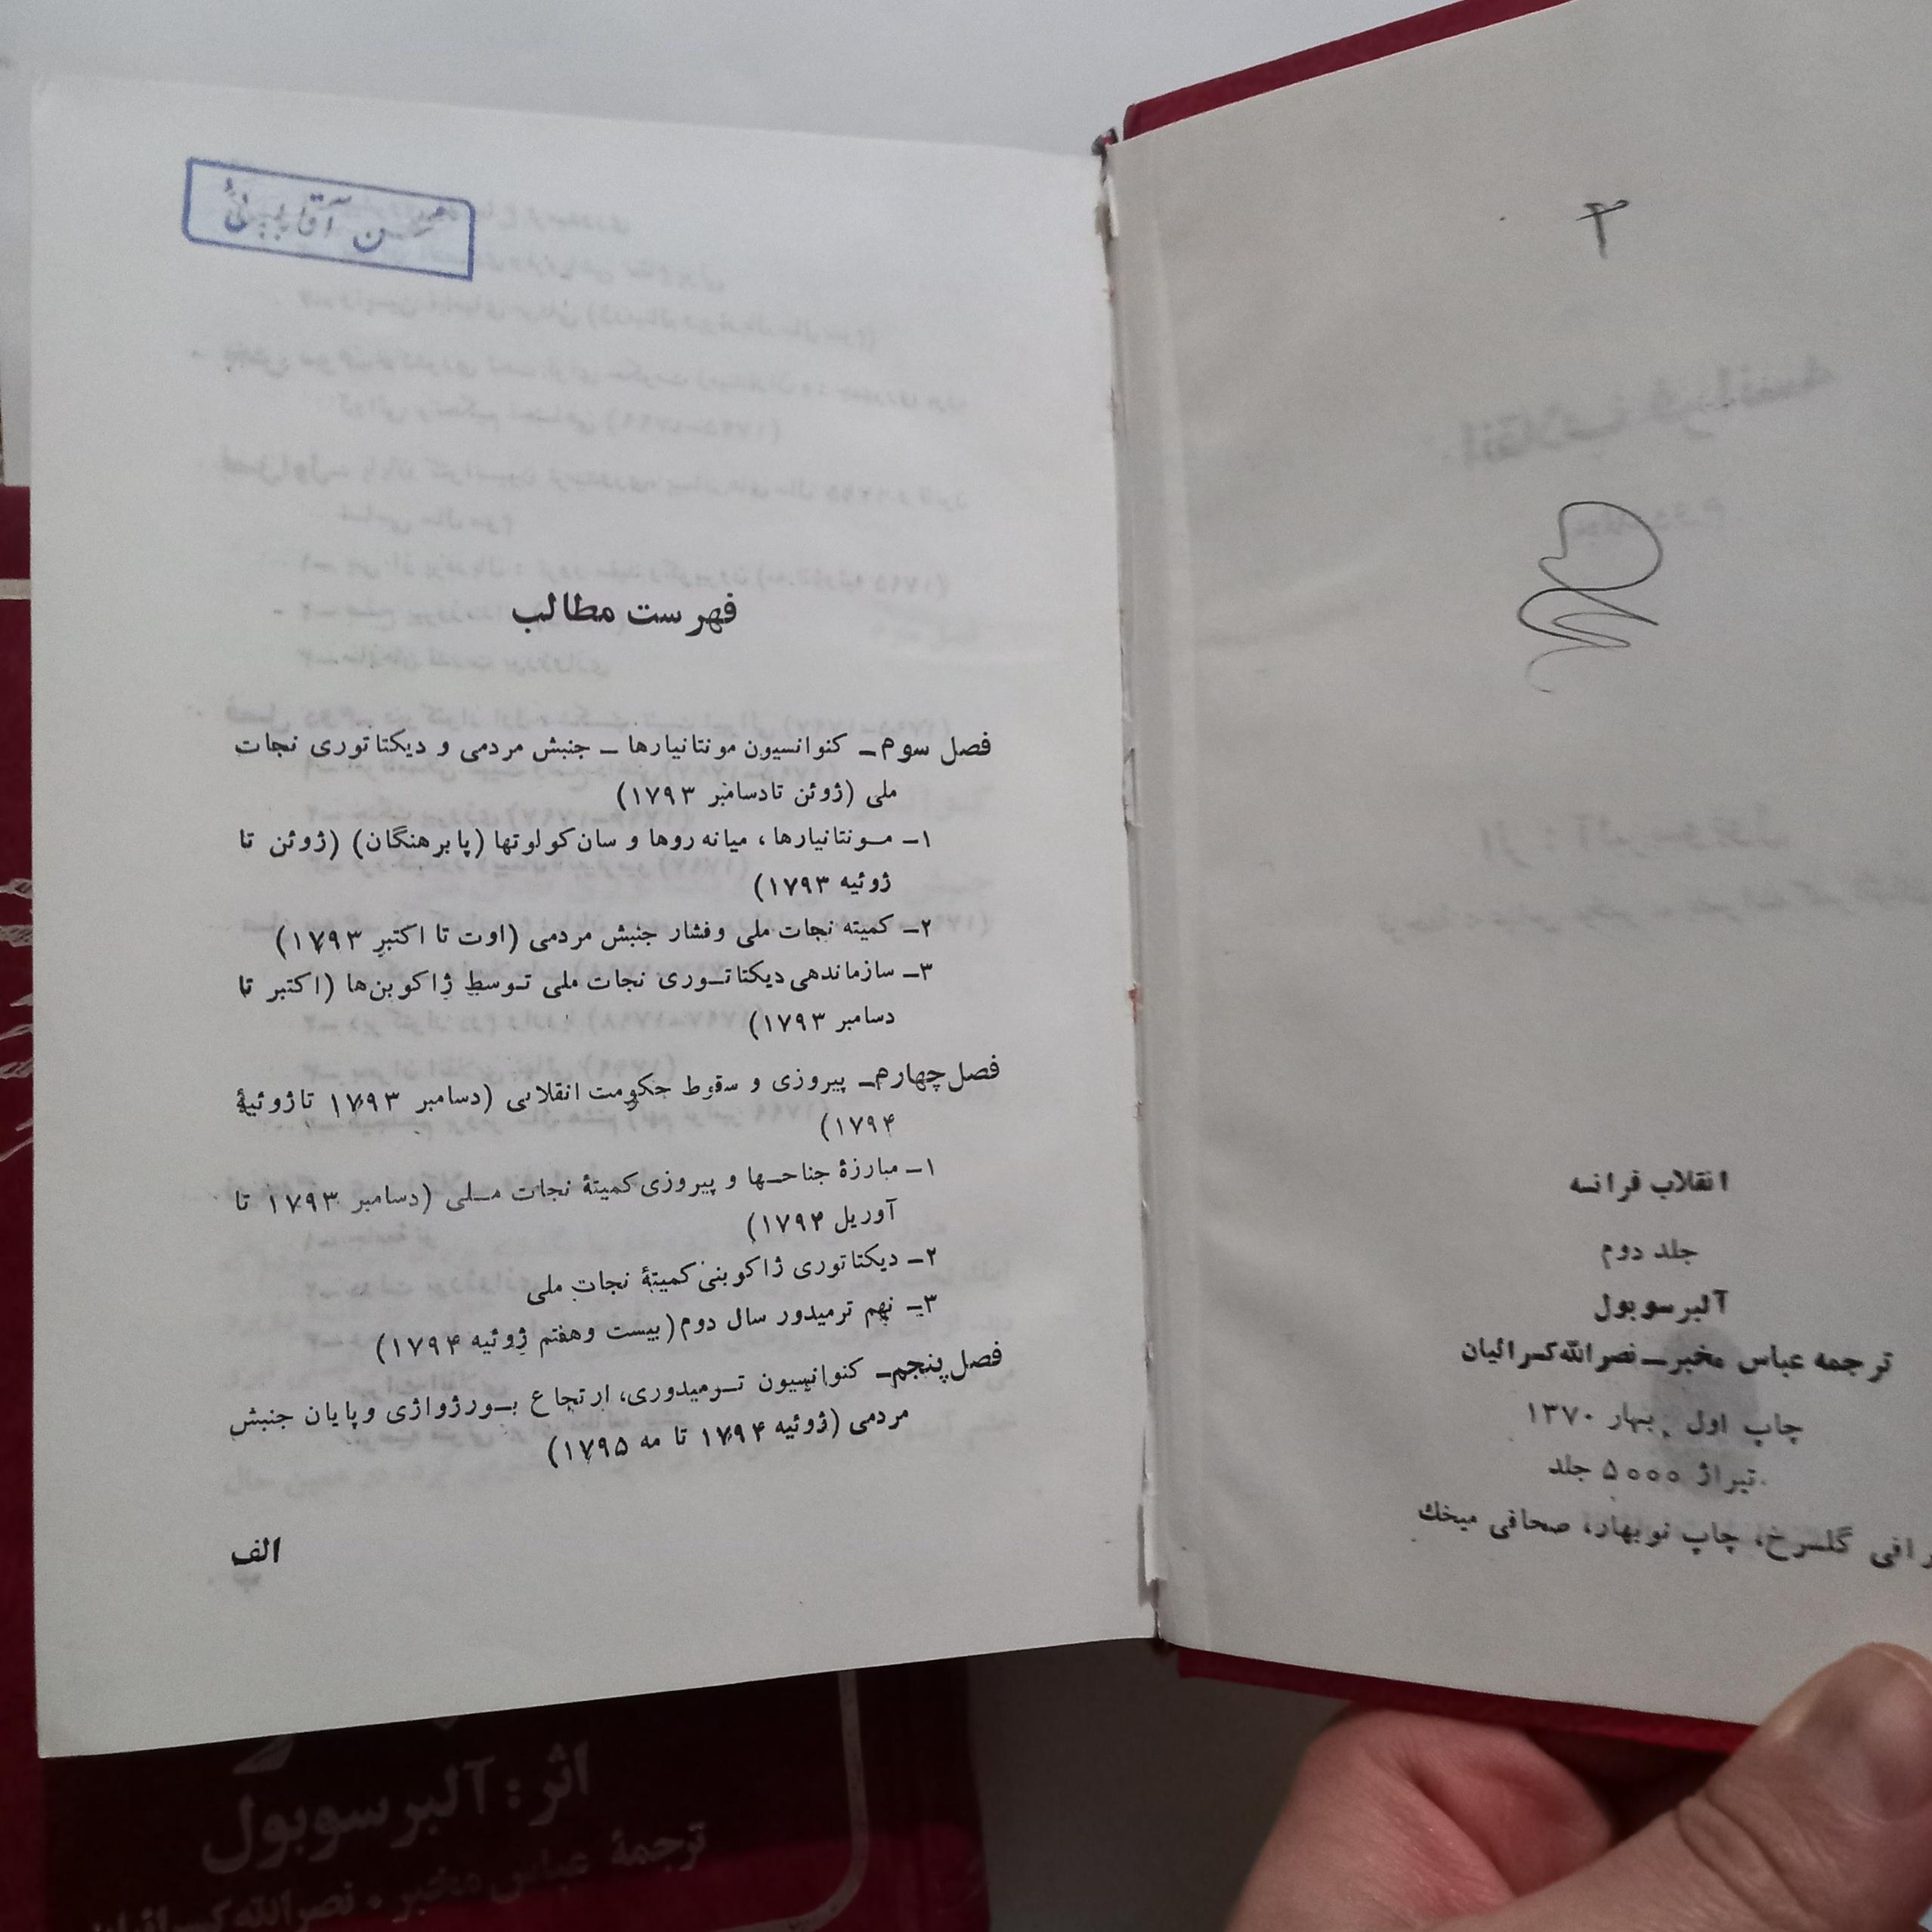 ۲
انقلاب فرانسه
جلد دوم
آلبرسوبول
ترجمه عباس مخبر ــ نصرالله کسرائیان
چاپ اول بهار ۱۳۷۰
تیراژ ۵۰۰۰ جلد
گلسرخ، چاپ نوبهار، صحافی میخک
فهرست مطالب
فصل سوم ــ کنوانسیون مونتانیارها ــ جنبش مردمی و دیکتاتوری نجات
ملی (ژوئن تا دسامبر ۱۷۹۳)
۱ــ مونتانیارها، میانه‌روها و سان‌کولوتها (پا برهنگان) (ژوئن تا
ژوئیه ۱۷۹۳)
۲ــ کمیته نجات ملی و فشار جنبش مردمی (اوت تا اکتبر ۱۷۹۳)
۳ــ سازماندهی دیکتاتوری نجات ملی توسط ژاکوبن‌ها (اکتبر تا
دسامبر ۱۷۹۳)
فصل چهارم ــ پیروزی و سقوط حکومت انقلابی (دسامبر ۱۷۹۳ تا ژوئیهٔ
۱۷۹۴)
۱ــ مبارزهٔ جناحها و پیروزی کمیتهٔ نجات ملی (دسامبر ۱۷۹۳ تا
آوریل ۱۷۹۴)
۲ــ دیکتاتوری ژاکوبنی کمیتهٔ نجات ملی
۳ــ نهم ترمیدور سال دوم (بیست وهفتم ژوئیه ۱۷۹۴)
فصل پنجم ــ کنوانسیون ترمیدوری، ارتجاع بورژواژی و پایان جنبش
مردمی (ژوئیه ۱۷۹۴ تا مه ۱۷۹۵)
الف
اثر: آلبرسوبول
ترجمهٔ عباس مخبر • نصرالله کسرائیان